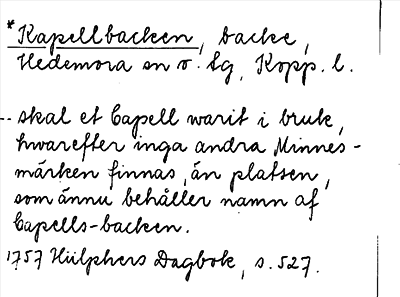 *Kapellbacken, backe,
Hedemora sn o. lg, Kopp. l.
-- skal et Capell warit i bruk,
hwarefter inga andra Minnes-
märken finnas, än platsen,
som ännu behåller namn af
Capells-backen.
1757 Hülphers Dagbok, s. 527.